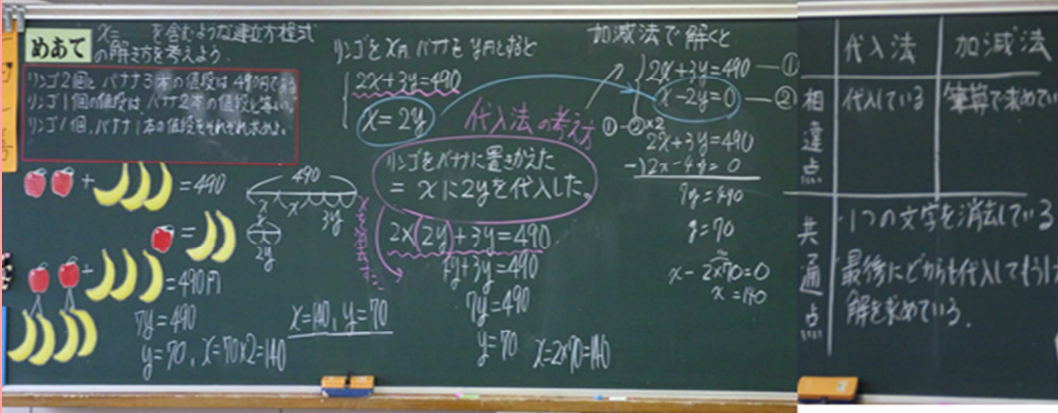 めあて
x=　を含むような連立方程式
の解き方を考えよう。
リンゴ2個とバナナ3本の値段は490円である。
リンゴ1個の値段はバナナ2本の値段と等しい。
リンゴ1個、バナナ1本の値段をそれぞれ求めよ。
+ =490
=
+ =490円
7y=490
y=70, x=70×2=140
490
x x 3y
2y
x=140, y=70
リンゴをx円 バナナを y円とすると
2x+3y=490
x=2y
代入法の考え方
リンゴをバナナに置きかえた
= xに2yを代入した。
2×(2y)+3y=490
4y+3y=490
7y=490
y=70 x=2×70=140
加減法で解くと
2x+3y=490 ―①
x-2y=0 ―②
①-②×2
2x+3y=490
-)2x-4y=0
7y=490
y=70
x-2×70=0
x=140
代入法 加減法
相違点 代入している 筆算で求めてい
共通点 1つの文字を消去している
最後にどちらも代入してもう1
解を求めている.